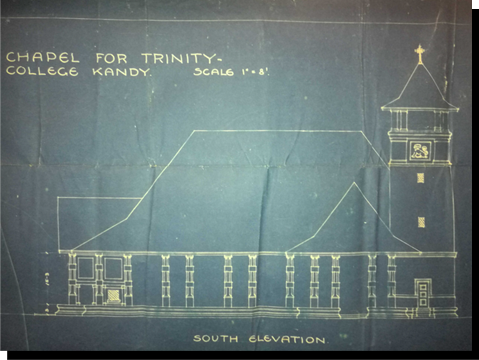 CHAPEL FOR TRINITY-
COLLEGE KANDY. SCALE 1" = 8'.
SOUTH ELEVATION